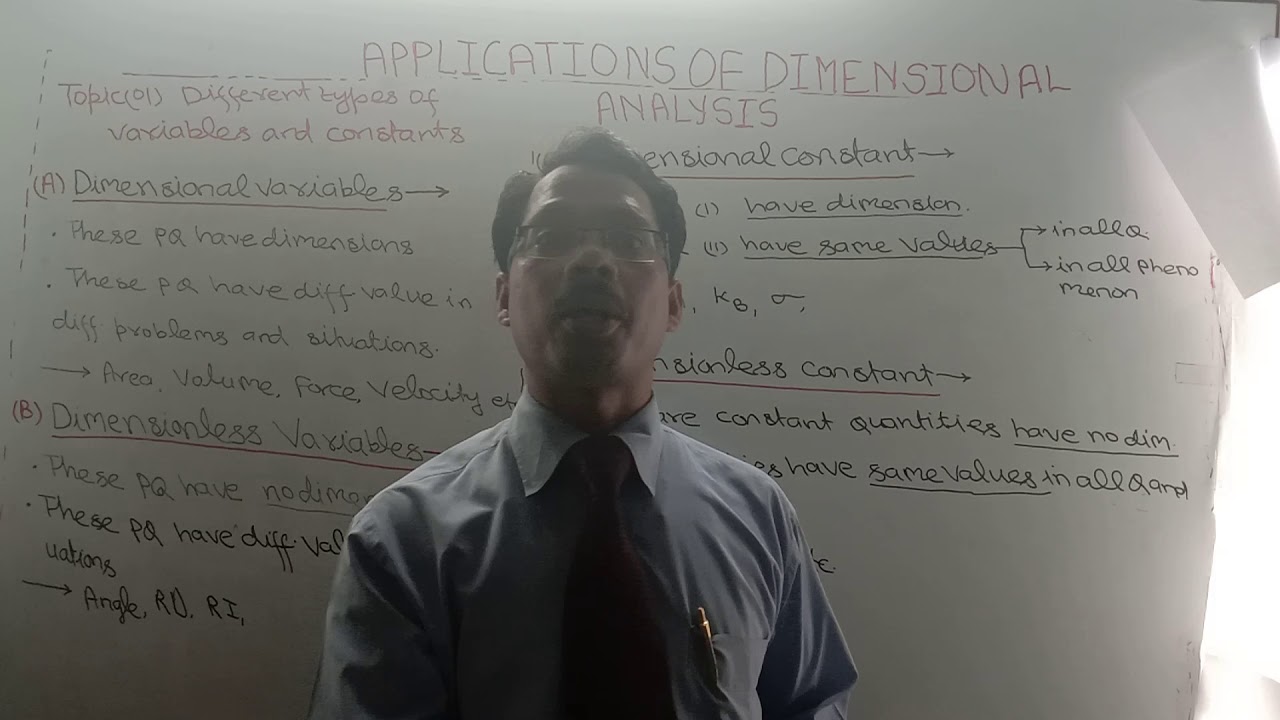 APPLICATIONS OF DIMENSIONAL
ANALYSIS
Topic(01) Different types of
variables and constants
(A) Dimensional variables →
· These PQ have dimensions
· These PQ have diff value in
diff problems and situations.
→ Area, Volume, Force, Velocity
(B) Dimensionless Variables
· These PQ have no
· These PQ have diff
uations
→ Angle, RD, RI,
constant →
(I) have dimension.
(II) have same values
→ in all Q.
→ in all pheno
menon
, KB, σ,
constant →
are constant quantities have no dim.
have same values in all Q and